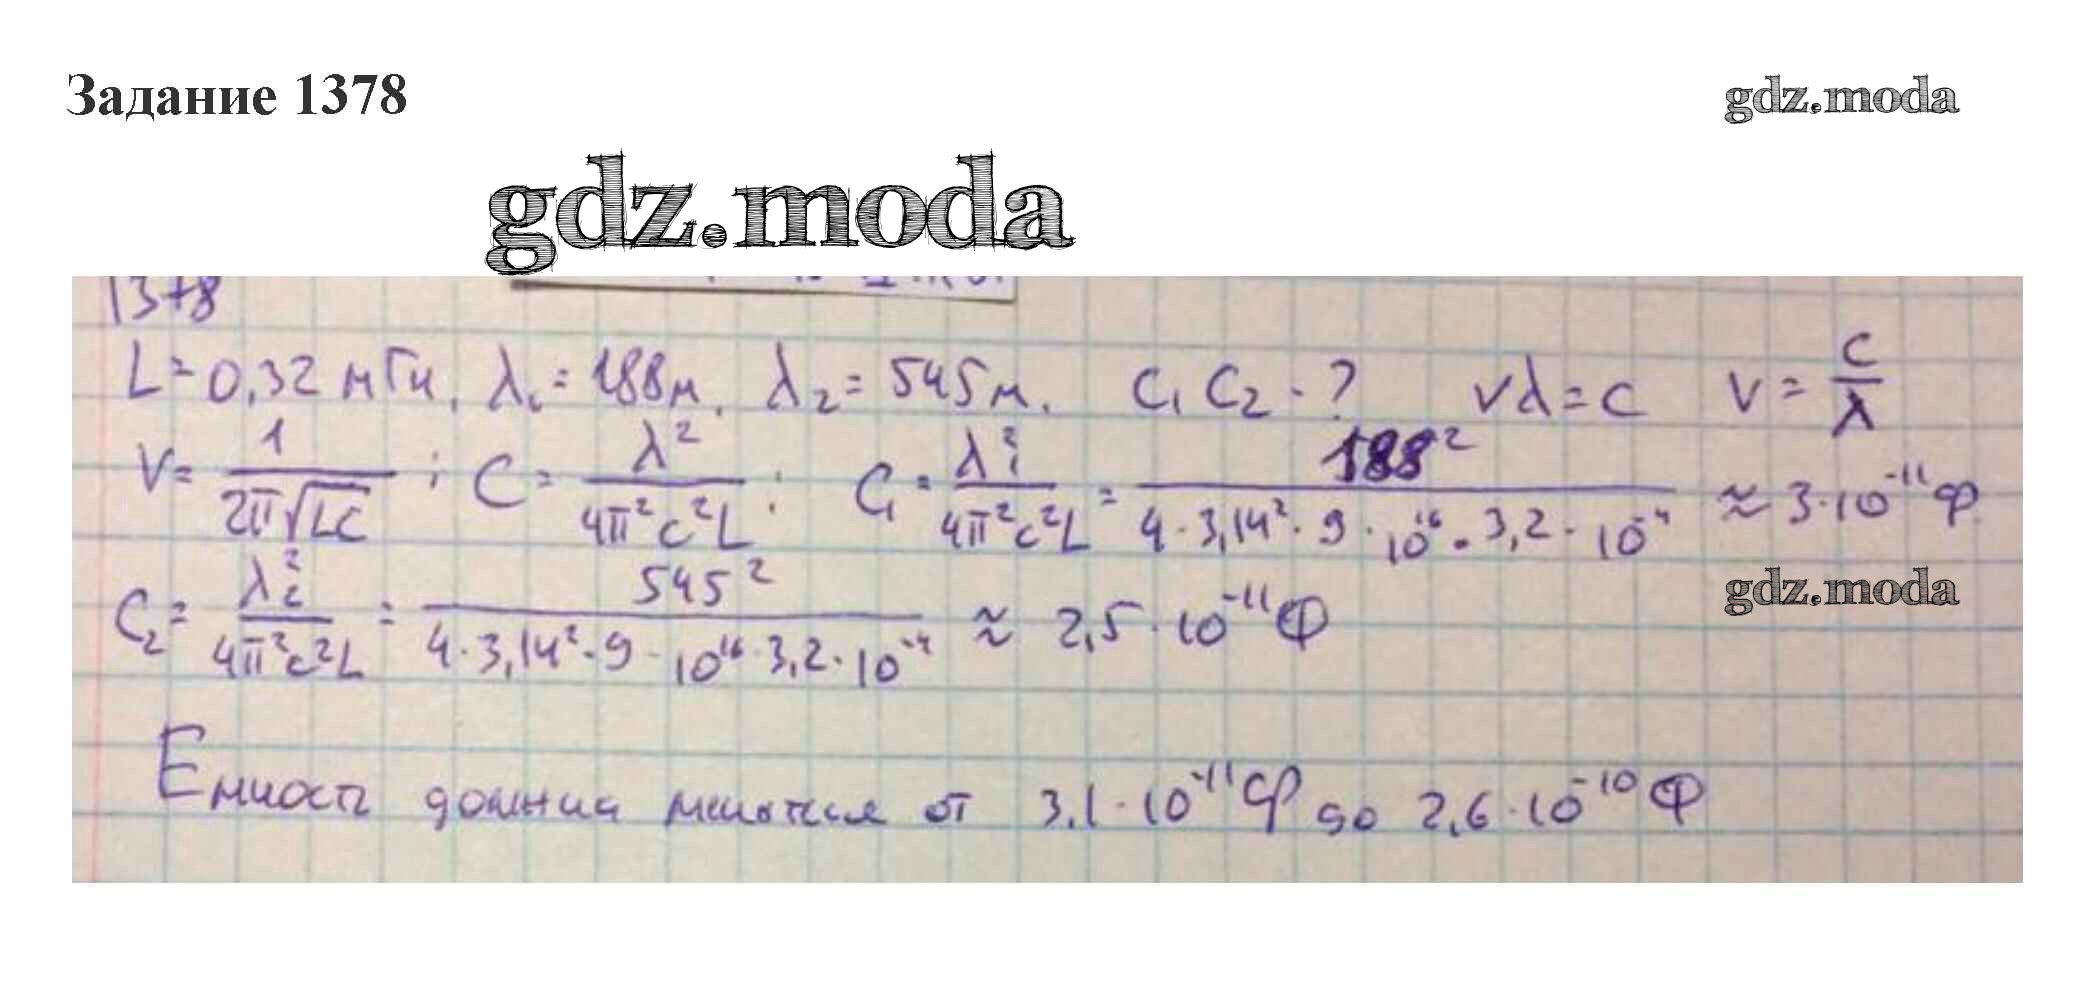 Задание 1378
gdz.moda
gdz.moda
1378
L = 0,32 мГн, λ₁ = 188м, λ₂ = 545м. C₁ C₂ - ? νλ = c ν = c/λ
ν = 1/(2π√LC) ; C = λ²/(4π²c²L) ; C₁ = λ₁²/(4π²c²L) = 188²/(4·3,14²·9·10¹⁶·3,2·10⁻⁴) ≈ 3·10⁻¹¹ Ф
C₂ = λ₂²/(4π²c²L) = 545²/(4·3,14²·9·10¹⁶·3,2·10⁻⁴) ≈ 2,5·10⁻¹¹ Ф
gdz.moda
Емкость должна меняться от 3,1·10⁻¹¹ Ф до 2,6·10⁻¹⁰ Ф